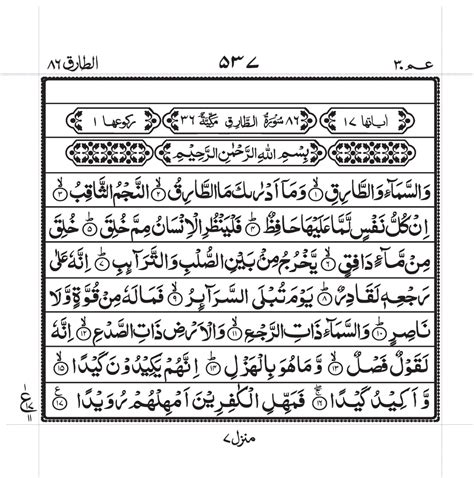 عم ۳۰ ۵۳۷ الطارق ۸۶
اٰیاتها ۱۷ ۸۶ سُوْرَةُ الطَّارِقِ مَكِّيَّةٌ ۳۶ رکوعها ۱
بِسْمِ اللهِ الرَّحْمٰنِ الرَّحِيْمِ
وَالسَّمَآءِ وَالطَّارِقِ ۱ وَمَآ اَدْرٰىكَ مَا الطَّارِقُ ۲ النَّجْمُ الثَّاقِبُ ۳
اِنْ كُلُّ نَفْسٍ لَّمَّا عَلَيْهَا حَافِظٌ ۴ فَلْيَنْظُرِ الْاِنْسَانُ مِمَّ خُلِقَ ۵ خُلِقَ
مِنْ مَّآءٍ دَافِقٍ ۶ يَّخْرُجُ مِنْۢ بَيْنِ الصُّلْبِ وَالتَّرَآئِبِ ۷ اِنَّهٗ عَلٰى
رَجْعِهٖ لَقَادِرٌ ۸ يَوْمَ تُبْلَى السَّرَآئِرُ ۹ فَمَا لَهٗ مِنْ قُوَّةٍ وَّلَا
نَاصِرٍ ۱۰ وَالسَّمَآءِ ذَاتِ الرَّجْعِ ۱۱ وَالْاَرْضِ ذَاتِ الصَّدْعِ ۱۲ اِنَّهٗ
لَقَوْلٌ فَصْلٌ ۱۳ وَّمَا هُوَ بِالْهَزْلِ ۱۴ اِنَّهُمْ يَكِيْدُوْنَ كَيْدًا ۱۵
وَّاَكِيْدُ كَيْدًا ۱۶ فَمَهِّلِ الْكٰفِرِيْنَ اَمْهِلْهُمْ رُوَيْدًا ۱۷
ع ۱۷ ۱۱
منزل ۷